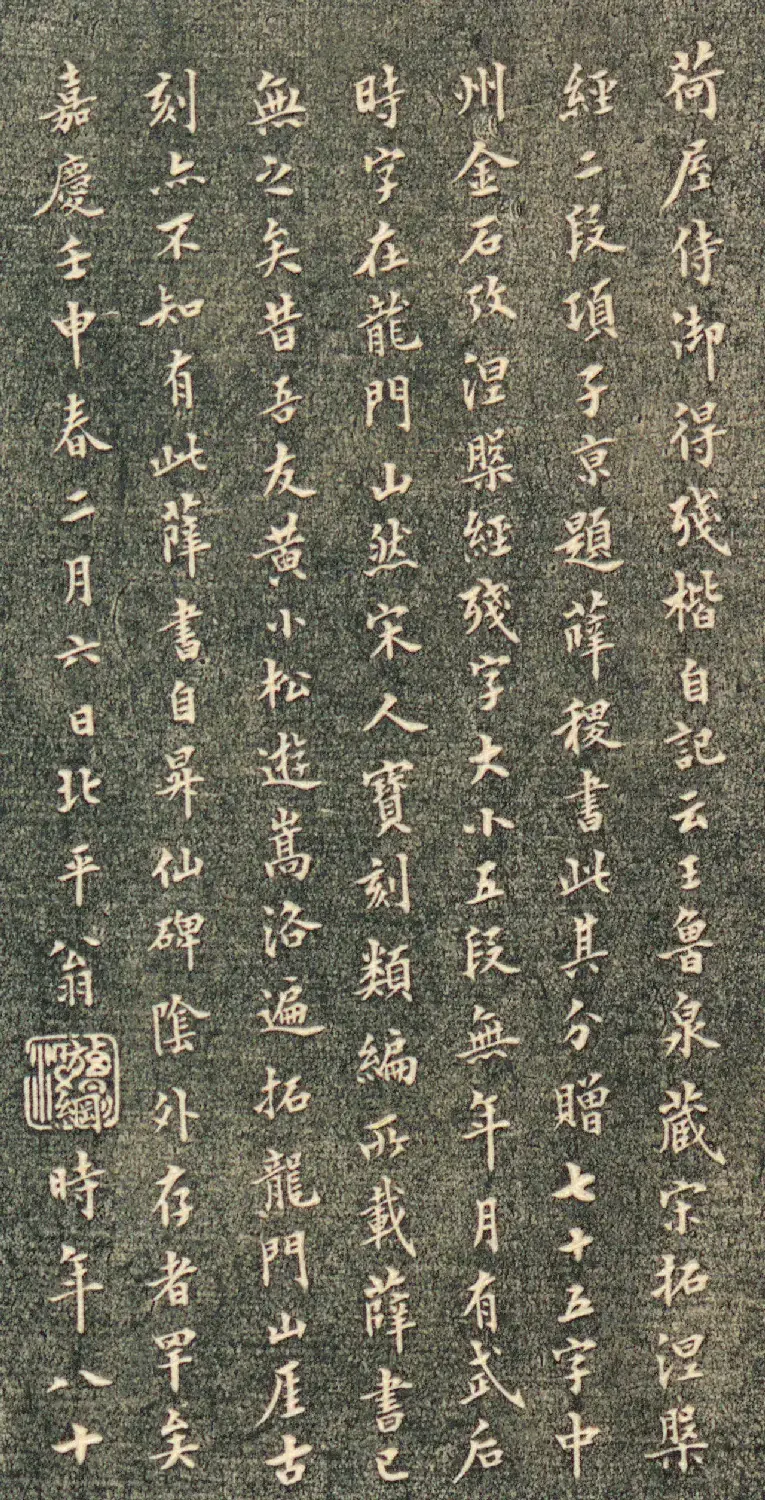 荷屋侍御得殘楷自記云王魯泉蔵宋拓涅槃
經二段項子京題薛稷書此其分贈七十五字中
州金石攷涅槃經殘字大小五段無年月有武后
時字在龍門山然宋人寶刻類編所載薛書已
無之矣昔吾友黄小松遊嵩洛遍拓龍門山厓古
刻亦不知有此薛書自昇仙碑陰外存者罕矣
嘉慶壬申春二月六日北平翁方綱時年八十